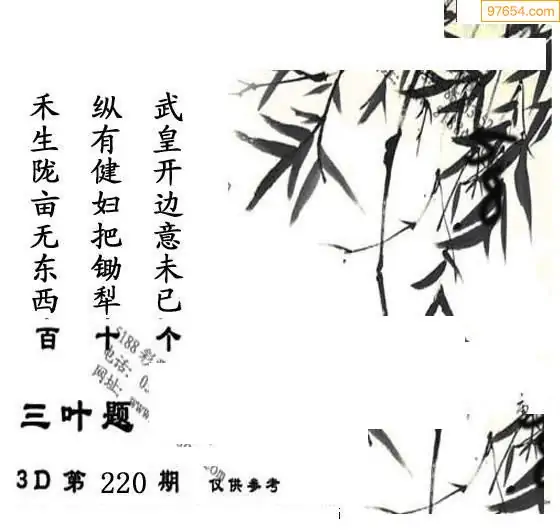 97654.com
武皇开边意未已
纵有健妇把锄犁
禾生陇亩无东西
百 十 个
5188 彩
电话: 0
网址: www
三叶题
3D 第 220 期 仅供参考